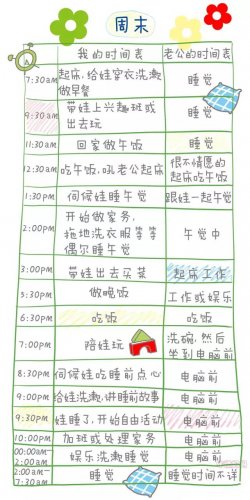 周末
我的时间表 老公的时间表
7:30am 起床,给娃穿衣洗漱 睡觉
做早餐
9:30am 带娃上兴趣班或 睡觉
出去玩
11:30am 回家做午饭 睡觉
12:30am 吃午饭,吼老公起床 很不情愿的
起床吃午饭
1:30pm 伺候娃睡午觉 跟娃一起午觉
2:00pm 开始做家务, 午觉中
拖地洗衣服等等
偶尔睡午觉
3:00pm 带娃出去买菜 起床工作
5:30pm 做晚饭 工作或娱乐
6:30pm 吃饭 吃饭
7:00pm 陪娃玩 洗碗,然后
坐到电脑前
8:30pm 伺候娃吃睡前点心 电脑前
9:00pm 给娃洗漱,讲睡前故事 电脑前
9:30pm 娃睡了,开始自由活动 电脑前
10:00pm 加班或处理家务 电脑前
00:00am— 娱乐洗漱睡觉 电脑前
2:00am
2:00am— 睡觉 睡觉时间不详
7:30am